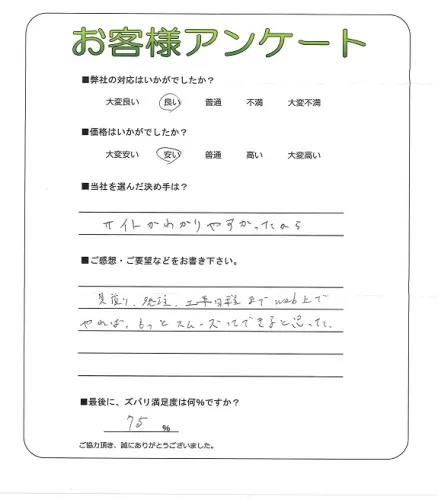 お客様アンケート
■弊社の対応はいかがでしたか？
大変良い 良い 普通 不満 大変不満
■価格はいかがでしたか？
大変安い 安い 普通 高い 大変高い
■当社を選んだ決め手は？
サイトがわかりやすかったから
■ご感想・ご要望などをお書き下さい。
見積り、発注、工事日程までweb上で
やれば、もっとスムーズにできると思った。
■最後に、ズバリ満足度は何％ですか？
75 %
ご協力頂き、誠にありがとうございました。